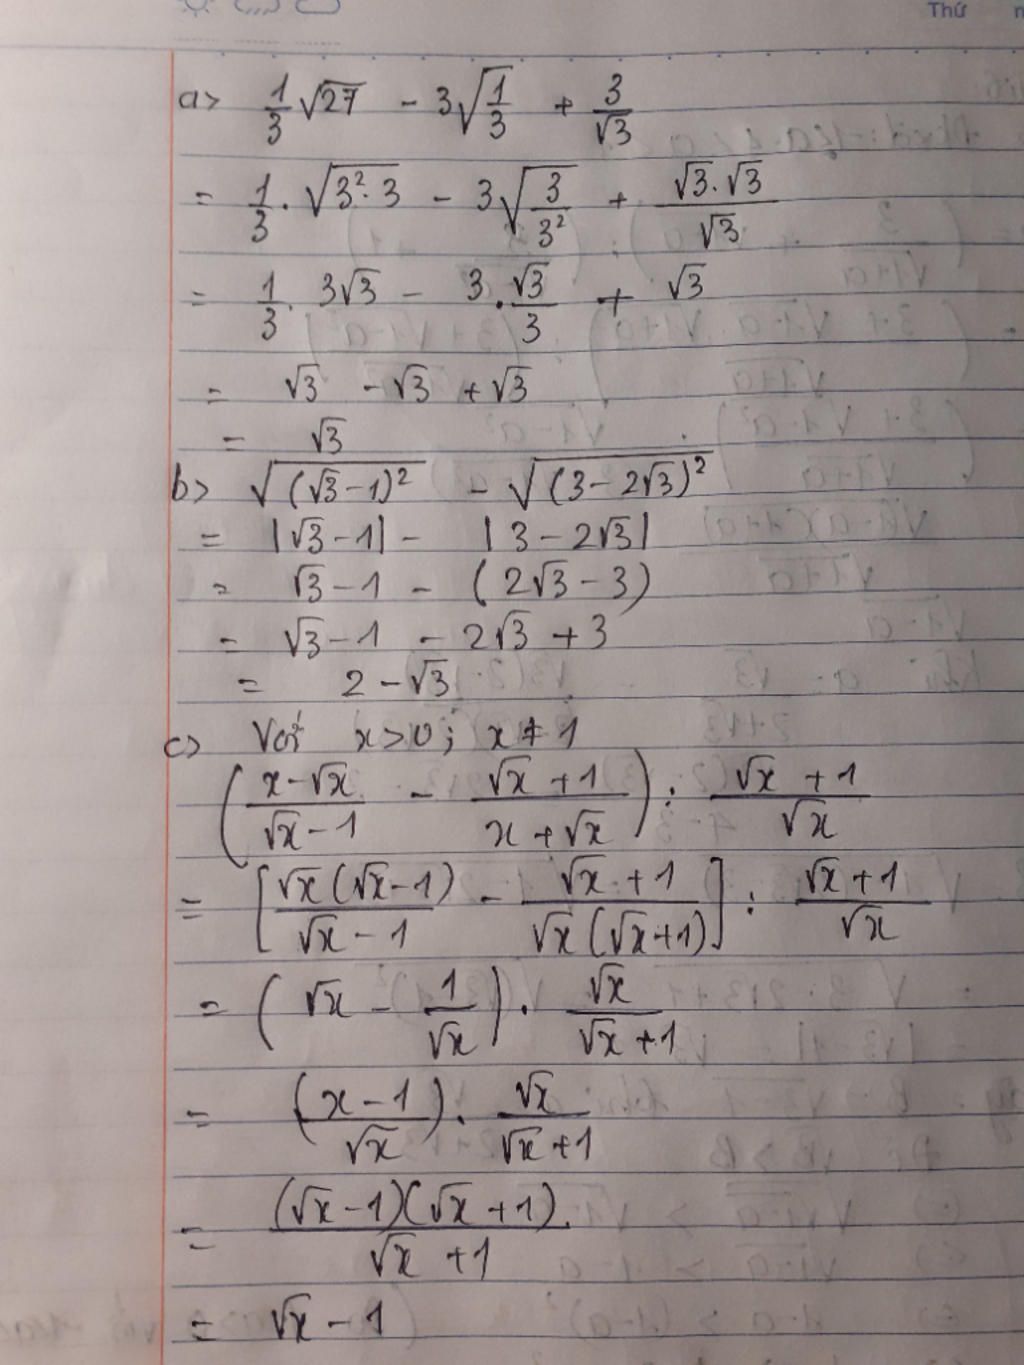 Thứ
a> 1/3 √27 - 3√(1/3) + 3/√3
= 1/3 . √(3².3) - 3√(3/3²) + (√3.√3)/√3
= 1/3 . 3√3 - 3.√3/3 + √3
= √3 - √3 + √3
= √3
b> √((√3-1)²) - √((3-2√3)²)
= |√3-1| - |3-2√3|
= √3-1 - (2√3-3)
= √3-1 - 2√3+3
= 2-√3
c> Với x>0; x≠1
((x-√x)/(√x-1) - (√x+1)/(x+√x)) : (√x+1)/√x
= [(√x(√x-1))/(√x-1) - (√x+1)/(√x(√x+1))] : (√x+1)/√x
= (√x - 1/√x) . √x/(√x+1)
= ((x-1)/√x) . √x/(√x+1)
= ((√x-1)(√x+1))/(√x+1)
= √x-1